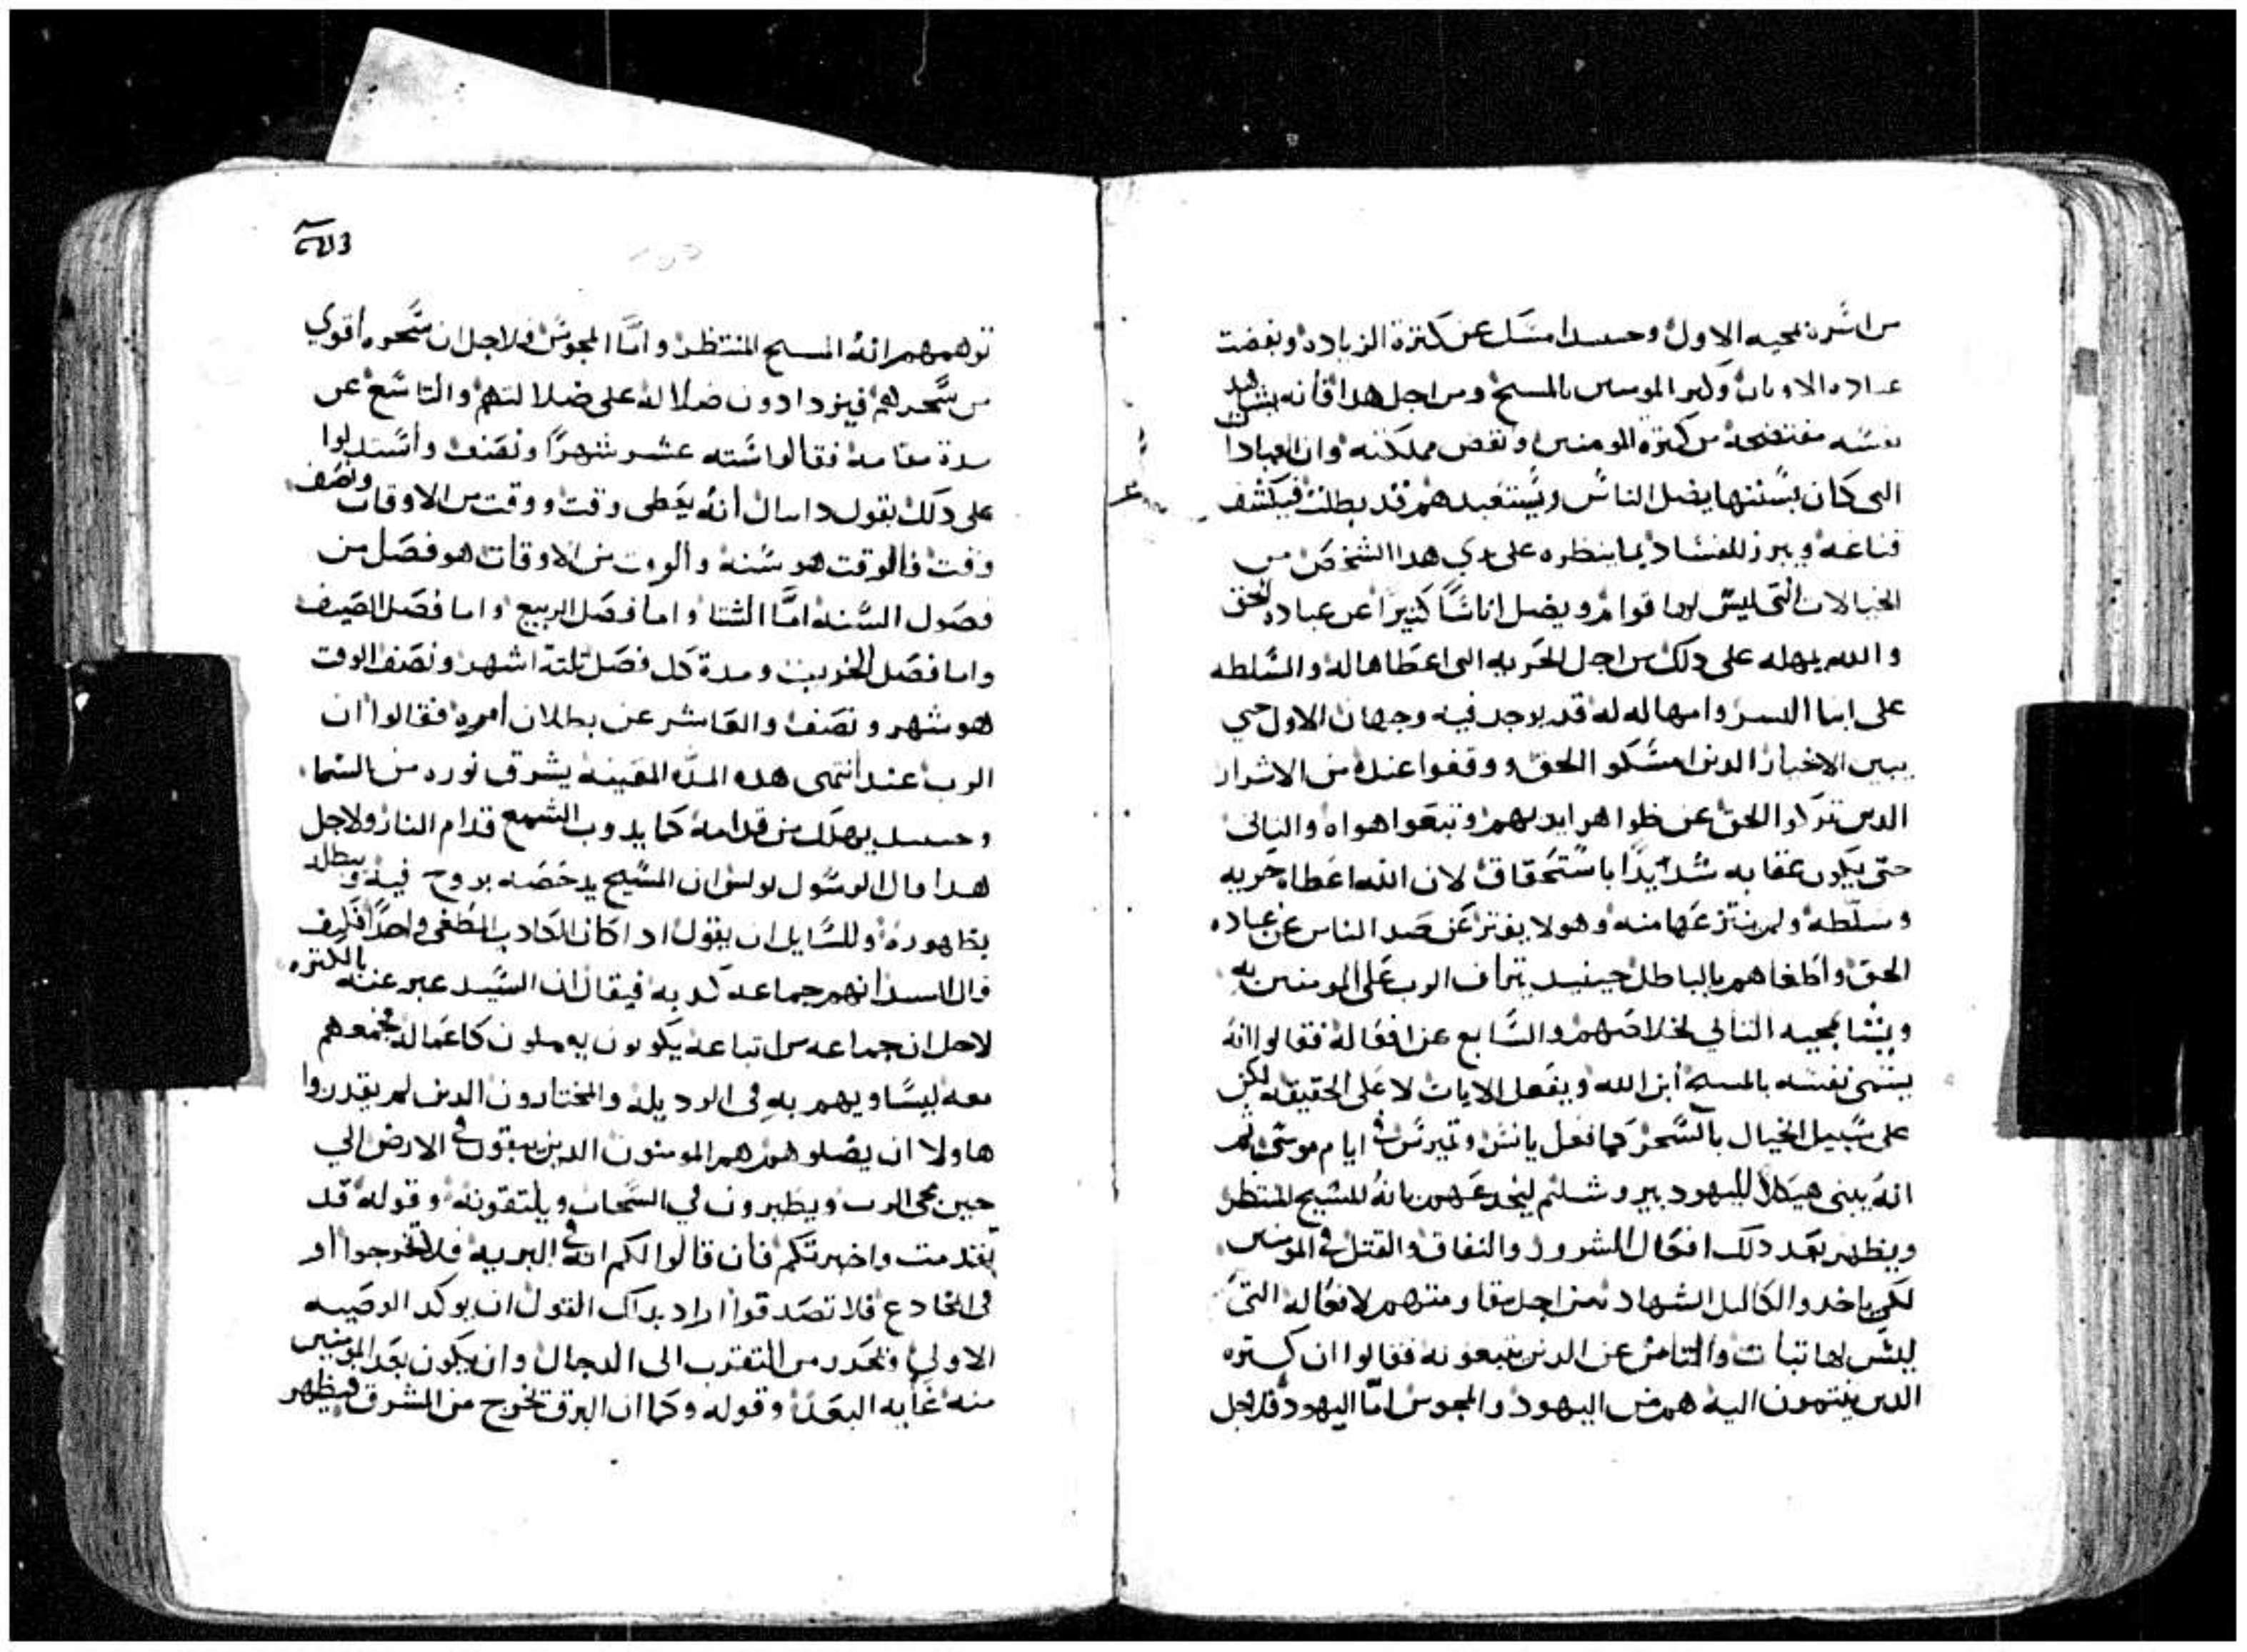 من اسره بمجيه الاول وحسدا امسك عن كترة الزياده وبغضت
عباده الاوتان وكتر المومنين بالمسيح ومن اجل هدا فأنه يشاهد
نفسه مفتضحه من كترة المومنين ونقص مملكته وان العبادا
التى كان بسننها يضل الناس ويستعبدهم قد بطلت فيكشف
قناعه ويبرز للفساد بما ينظره على يدي هدا الشخص من
الخيالات التى ليس لها قوام ويضل اناسًا كتيرًا عن عباده الحق
والله يمهله على دلك من اجل الحريه التى اعطاها له والسلطه
على ابنا البشر وامهاله له قد يوجد فيه وجهان الاول حتي
يبين الاخيار الدين امسكو الحق ووقفوا عنده من الاشرار
الدين تركوا الحق عن ظواهر ايديهم وتبعوا هواه والتانى
حتى يكون عقابه شدايدًا باستحقاق لان الله اعطاه حريه
وسلطه ولم ينتزعها منه وهو لا يفتر عن صد الناس عن عباده
الحق واطغاهم بالباطل حينيد يترأف الرب على المومنين به
ويشا بمجيه التاني لخلاصهم والسابع عن افعاله فقالوا انه
يسمى نفسه بالمسيح أبن الله ويفعل الايات لا على الحقيقه لكن
على سبيل الخيال بالسحر كما فعل يانس ويمبرس في ايام موسى تم
انه يبنى هيكلاً لليهود بيروشليم ليخدعهم بانه المسيح المنتظر
ويظهر بعد دلك افعال الشرور والنفاق والقتل في المومنين
لكي ياخدوا اكاليل الشهاده من اجل مقاومتهم لافعاله التى
ليس لها تبات والتامن عن الدين يتبعونه فقالوا ان كتره
الدين ينتمون اليه هم من اليهود والمجوس امّا اليهود فلاجل
توهمهم انه المسيح المنتظر وامّا المجوس فلاجل ان سحره اقوي
من سحرهم فيزدادون ضلالة على ضلالتهم والتاسع عن
مدة مقامه فقالوا سته عشر شهرًا ونصف وأستدلوا
على دلك بقول دانيال أنه يعطى وقت ووقت من الاوقات ونصف
وقت فالوقت هو سنه والوقت من الاوقات هو فصل من
فصول السنه امّا الشتا واما فصل الربيع واما فصل الصيف
واما فصل الخريف ومدة كل فصل تلتة اشهر ونصف الوقت
هو شهر ونصف والعاشر عن بطلان أمره فقالوا ان
الرب عند أنتهى هده المدّه المعينه يشرق نوره من السما
وحينيد يهلك من قدامه كما يدوب الشمع قدام النار ولاجل
هدا قال الرسول بولس ان المسيح يدحضه بروح فيه ويبطله
بظهوره وللسايل ان يقول ادا كان الكادب المطغى واحدًا فكيف
قال السيد انهم جماعه كدبه فيقال ان السيد عبر عنه بالكتره
لاجل ان جماعه من اتباعه يكونون يعملون كاعماله فجمعهم
معه ليساويهم به في الرديلة والمختارون الدين لم يقدروا
هاولا ان يضلوهم هم المومنون الدين يبقون في الارض الي
حين مجى الرب ويطيرون في السحاب ويلتقونه وقوله قد
تقدمت واخبرتكم فأن قالوا لكم انه في البريه فلا تخرجوا أو
في المخادع فلا تصدقوا اراد بداك القول ان يوكد الوصيه
الاولي وتحدر من التقرب الى الدجال وان يكون بعد المومنين
منه غايه البعد وقوله وكما ان البرق تخرج من المشرق فيظهر